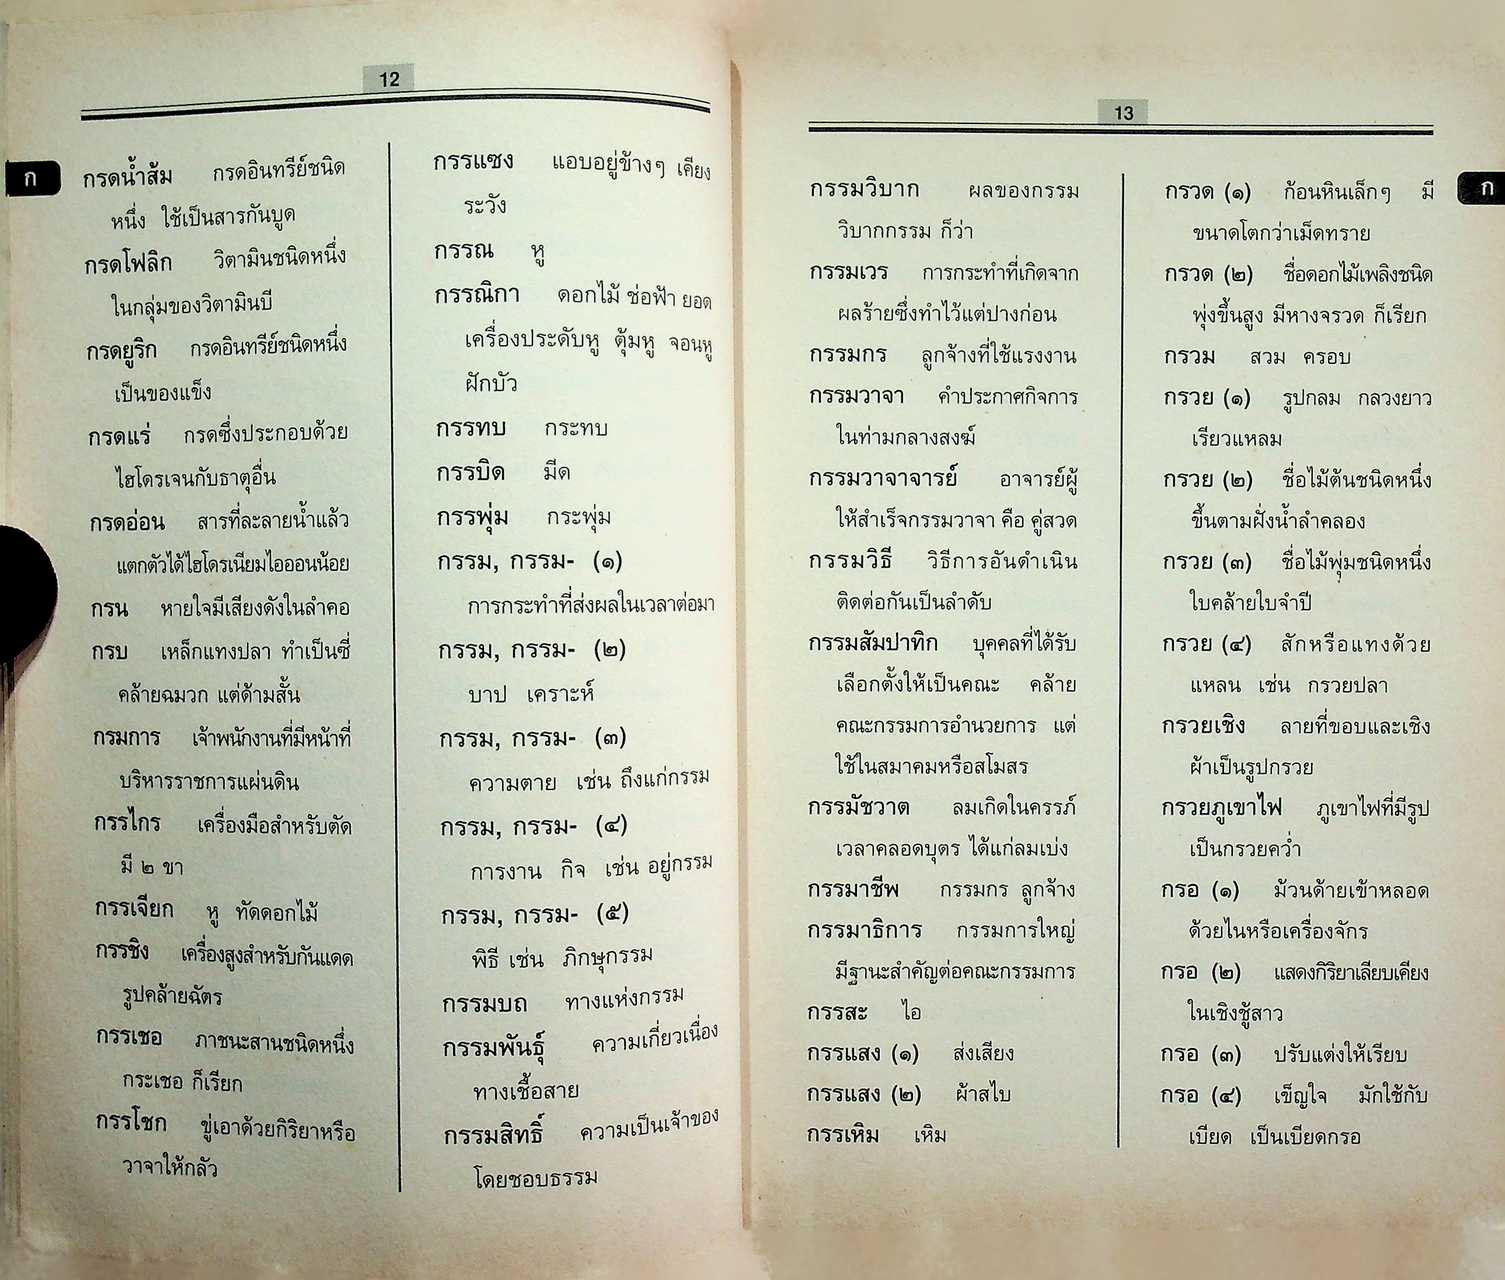 12
ก
กรดน้ำส้ม กรดอินทรีย์ชนิด
หนึ่ง ใช้เป็นสารกันบูด
กรดโฟลิก วิตามินชนิดหนึ่ง
ในกลุ่มของวิตามินบี
กรดยูริก กรดอินทรีย์ชนิดหนึ่ง
เป็นของแข็ง
กรดแร่ กรดซึ่งประกอบด้วย
ไฮโดรเจนกับธาตุอื่น
กรดอ่อน สารที่ละลายน้ำแล้ว
แตกตัวได้ไฮโดรเนียมไอออนน้อย
กรน หายใจมีเสียงดังในลำคอ
กรบ เหล็กแทงปลา ทำเป็นซี่
คล้ายฉมวก แต่ด้ามสั้น
กรมการ เจ้าพนักงานที่มีหน้าที่
บริหารราชการแผ่นดิน
กรรไกร เครื่องมือสำหรับตัด
มี ๒ ขา
กรรเจียก หู ทัดดอกไม้
กรรชิง เครื่องสูงสำหรับกันแดด
รูปคล้ายฉัตร
กรรเชอ ภาชนะสานชนิดหนึ่ง
กระเชอ ก็เรียก
กรรโชก ขู่เอาด้วยกิริยาหรือ
วาจาให้กลัว
กรรแซง แอบอยู่ข้างๆ เคียง
ระวัง
กรรณ หู
กรรณิกา ดอกไม้ ช่อฟ้า ยอด
เครื่องประดับหู ตุ้มหู จอนหู
ฝักบัว
กรรทบ กระทบ
กรรบิด มีด
กรรพุ่ม กระพุ่ม
กรรม, กรรม- (๑)
การกระทำที่ส่งผลในเวลาต่อมา
กรรม, กรรม- (๒)
บาป เคราะห์
กรรม, กรรม- (๓)
ความตาย เช่น ถึงแก่กรรม
กรรม, กรรม- (๔)
การงาน กิจ เช่น อยู่กรรม
กรรม, กรรม- (๕)
พิธี เช่น ภิกษุกรรม
กรรมบถ ทางแห่งกรรม
กรรมพันธุ์ ความเกี่ยวเนื่อง
ทางเชื้อสาย
กรรมสิทธิ์ ความเป็นเจ้าของ
โดยชอบธรรม
13
ก
กรรมวิบาก ผลของกรรม
วิบากกรรม ก็ว่า
กรรมเวร การกระทำที่เกิดจาก
ผลร้ายซึ่งทำไว้แต่ปางก่อน
กรรมกร ลูกจ้างที่ใช้แรงงาน
กรรมวาจา คำประกาศกิจการ
ในท่ามกลางสงฆ์
กรรมวาจาจารย์ อาจารย์ผู้
ให้สำเร็จกรรมวาจา คือ คู่สวด
กรรมวิธี วิธีการอันดำเนิน
ติดต่อกันเป็นลำดับ
กรรมสัมปาทิก บุคคลที่ได้รับ
เลือกตั้งให้เป็นคณะ คล้าย
คณะกรรมการอำนวยการ แต่
ใช้ในสมาคมหรือสโมสร
กรรมัชวาต ลมเกิดในครรภ์
เวลาคลอดบุตร ได้แก่ลมเบ่ง
กรรมาชีพ กรรมกร ลูกจ้าง
กรรมาธิการ กรรมการใหญ่
มีฐานะสำคัญต่อคณะกรรมการ
กรรสะ ไอ
กรรแสง (๑) ส่งเสียง
กรรแสง (๒) ผ้าสไบ
กรรเหิม เหิม
กรวด (๑) ก้อนหินเล็กๆ มี
ขนาดโตกว่าเม็ดทราย
กรวด (๒) ชื่อดอกไม้เพลิงชนิด
พุ่งขึ้นสูง มีหางจรวด ก็เรียก
กรวม สวม ครอบ
กรวย (๑) รูปกลม กลวงยาว
เรียวแหลม
กรวย (๒) ชื่อไม้ต้นชนิดหนึ่ง
ขึ้นตามฝั่งน้ำลำคลอง
กรวย (๓) ชื่อไม้พุ่มชนิดหนึ่ง
ใบคล้ายใบจำปี
กรวย (๔) สักหรือแทงด้วย
แหลน เช่น กรวยปลา
กรวยเชิง ลายที่ขอบและเชิง
ผ้าเป็นรูปกรวย
กรวยภูเขาไฟ ภูเขาไฟที่มีรูป
เป็นกรวยคว่ำ
กรอ (๑) ม้วนด้ายเข้าหลอด
ด้วยไนหรือเครื่องจักร
กรอ (๒) แสดงกิริยาเลียบเคียง
ในเชิงชู้สาว
กรอ (๓) ปรับแต่งให้เรียบ
กรอ (๔) เข็ญใจ มักใช้กับ
เบียด เป็นเบียดกรอ